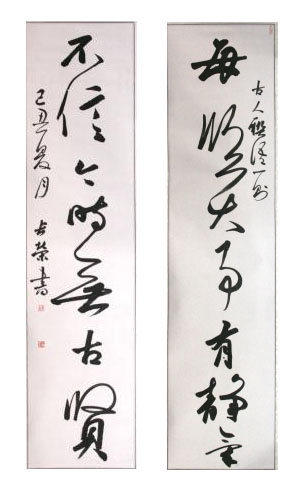 每临大事有靜氣
古人聯语一则
不信今時無古賢
己丑夏月
榮書